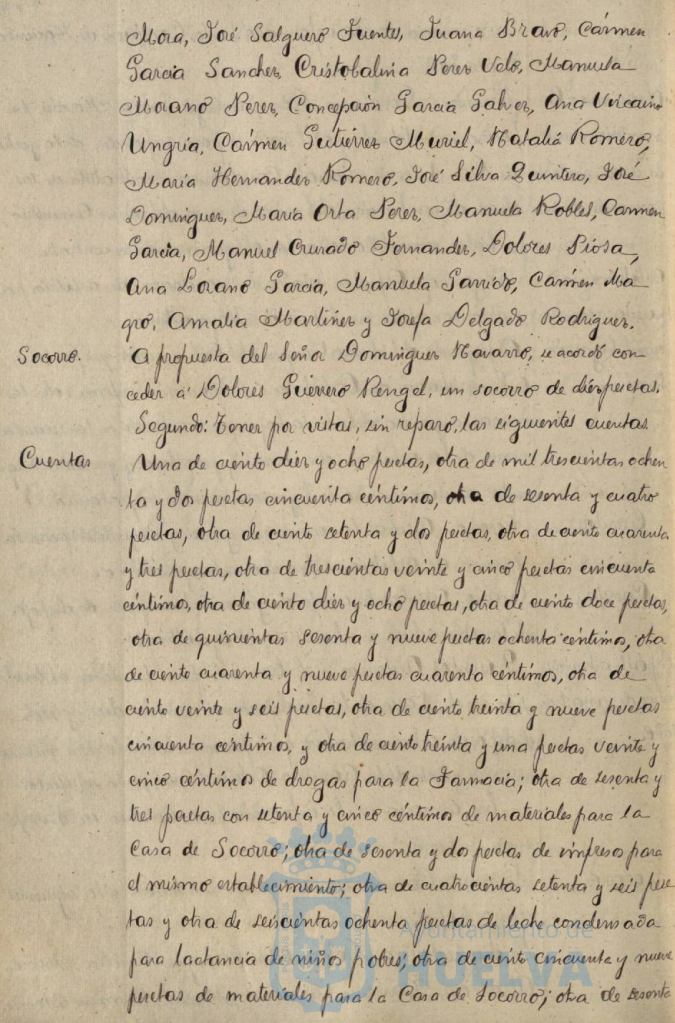 Mora, José Salguero Fuentes, Juana Bravo, Cármen
Garcia Sanchez, Cristobalina Perez Velo, Manuela
Morano Perez, Concepción Garcia Galvez, Ana Vizcaino
Ungria, Cármen Gutiérrez Muriel, Natalia Romero,
Maria Hernandez Romero, José Silva Quintero, José
Dominguez, Maria Orta Perez, Manuela Robles, Carmen
Garcia, Manuel Cruzado Fernandez, Dolores Piosa,
Ana Lozano Garcia, Manuela Garrido, Carmen Ma
gro, Amalia Martinez y Josefa Delgado Rodriguez.
Socorro. A propuesta del Señor Dominguez Navarro, se acordó con
ceder á Dolores Guerrero Rengel, un socorro de diez pesetas.
Segundo: Tener por vistas, sin reparo, las siguientes cuentas.
Cuentas Una de ciento diez y ocho pesetas, otra de mil trescientas ochen
ta y dos pesetas cincuenta céntimos, otra de sesenta y cuatro
pesetas, otra de ciento setenta y dos pesetas, otra de ciento cuarenta
y tres pesetas, otra de trescientas veinte y cinco pesetas cincuenta
céntimos, otra de ciento diez y ocho pesetas, otra de ciento doce pesetas,
otra de quinientas sesenta y nueve pesetas ochenta céntimos, otra
de ciento cuarenta y nueve pesetas cuarenta céntimos, otra de
ciento veinte y seis pesetas, otra de ciento treinta y nueve pesetas
cincuenta céntimos, y otra de ciento treinta y una pesetas veinte y
cinco céntimos de drogas para la Farmacia; otra de sesenta y
tres pesetas con setenta y cinco céntimos de materiales para la
Casa de Socorro; otra de sesenta y dos pesetas de impresos para
el mismo establecimiento; otra de cuatrocientas setenta y seis pese
tas y otra de seiscientas ochenta pesetas de leche condensada
para lactancia de niños pobres; otra de ciento cincuenta y nueve
pesetas de materiales para la Casa de Socorro; otra de sesenta
Ayuntamiento de
HUELVA